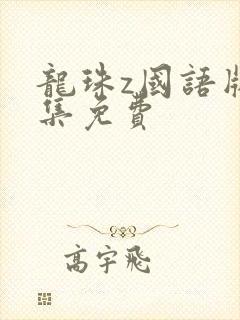 龍珠z國語版
集免費
高宇飛